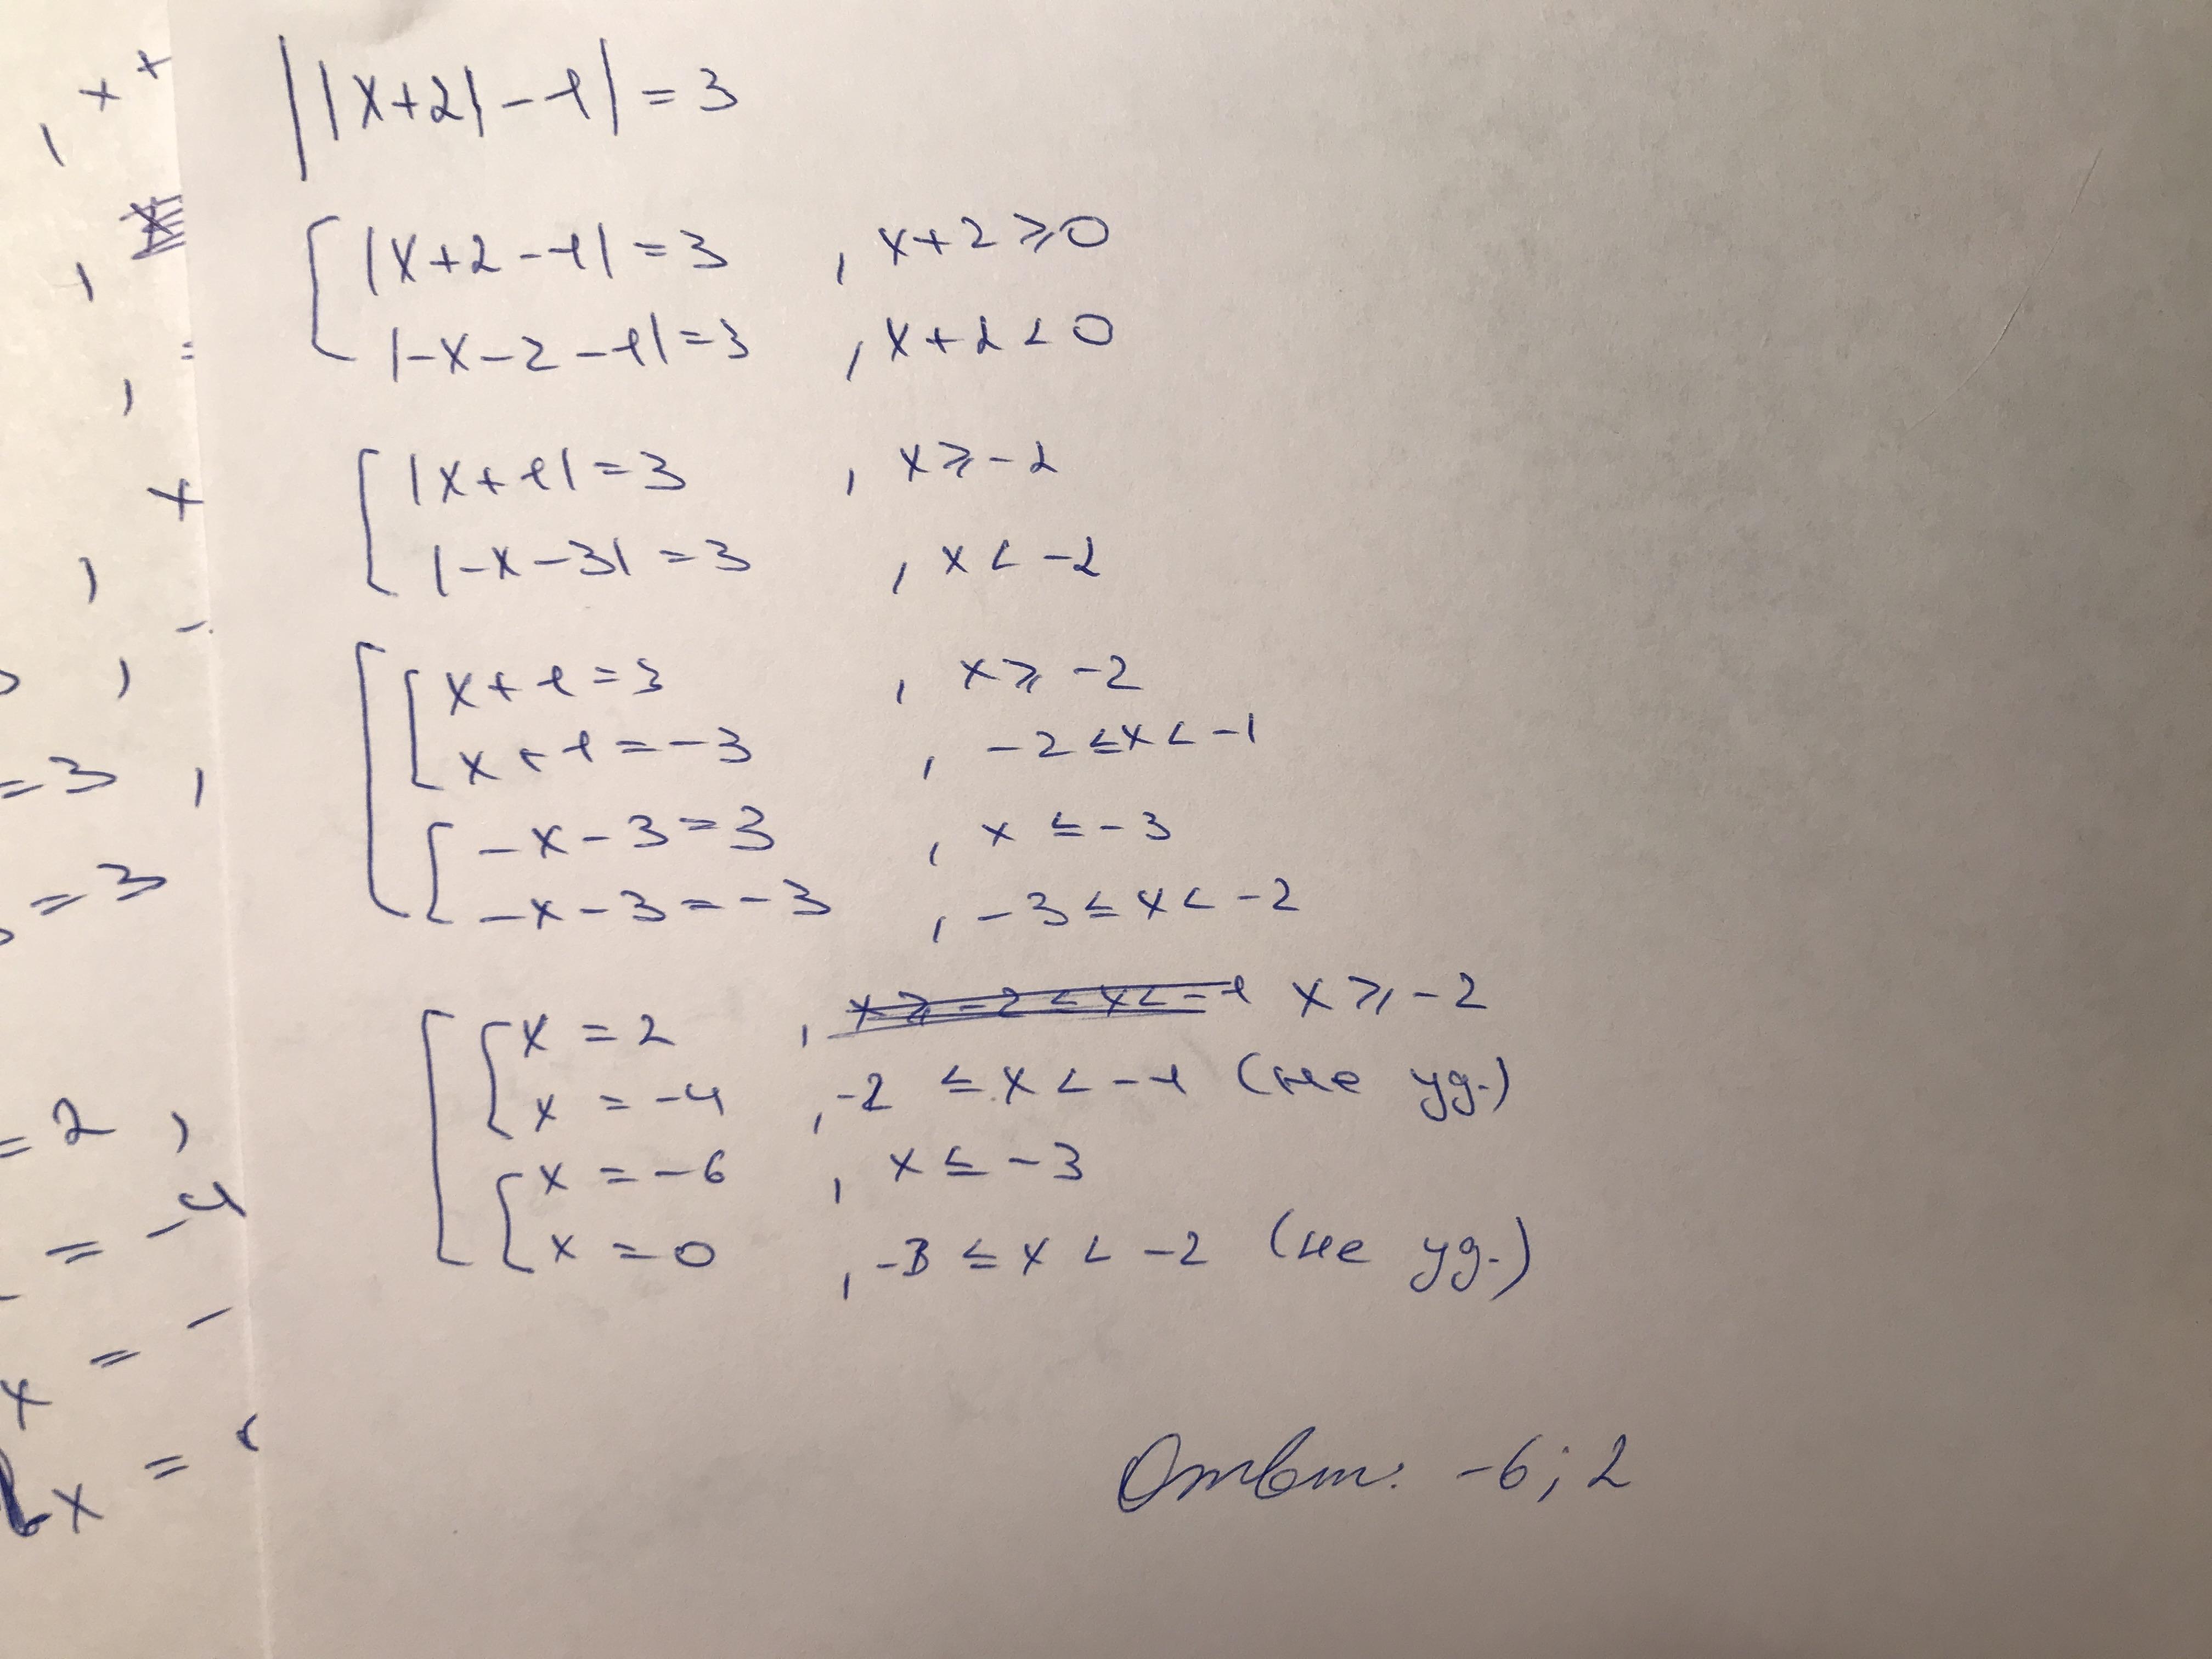 ||x+2|-1|=3
|x+2-1|=3 , x+2⩾0
|-x-2-1|=3 , x+2<0
|x+1|=3 , x⩾-2
|-x-3|=3 , x<-2
x+1=3 , x⩾-2
x+1=-3 , -2≤x<-1
-x-3=3 , x≤-3
-x-3=-3 , -3≤x<-2
x=2 , x⩾-2
x=-4 , -2≤x<-1 (не уд.)
x=-6 , x≤-3
x=0 , -3≤x<-2 (не уд.)
Ответ: -6; 2
=3 ,
=3
=2 ,
=-4
x =
x =